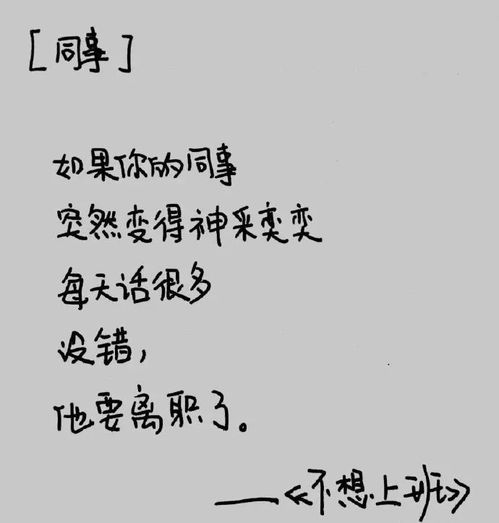 [同事]
如果你的同事
突然变得神采奕奕
每天话很多
没错，
他要离职了。
——《不想上班》